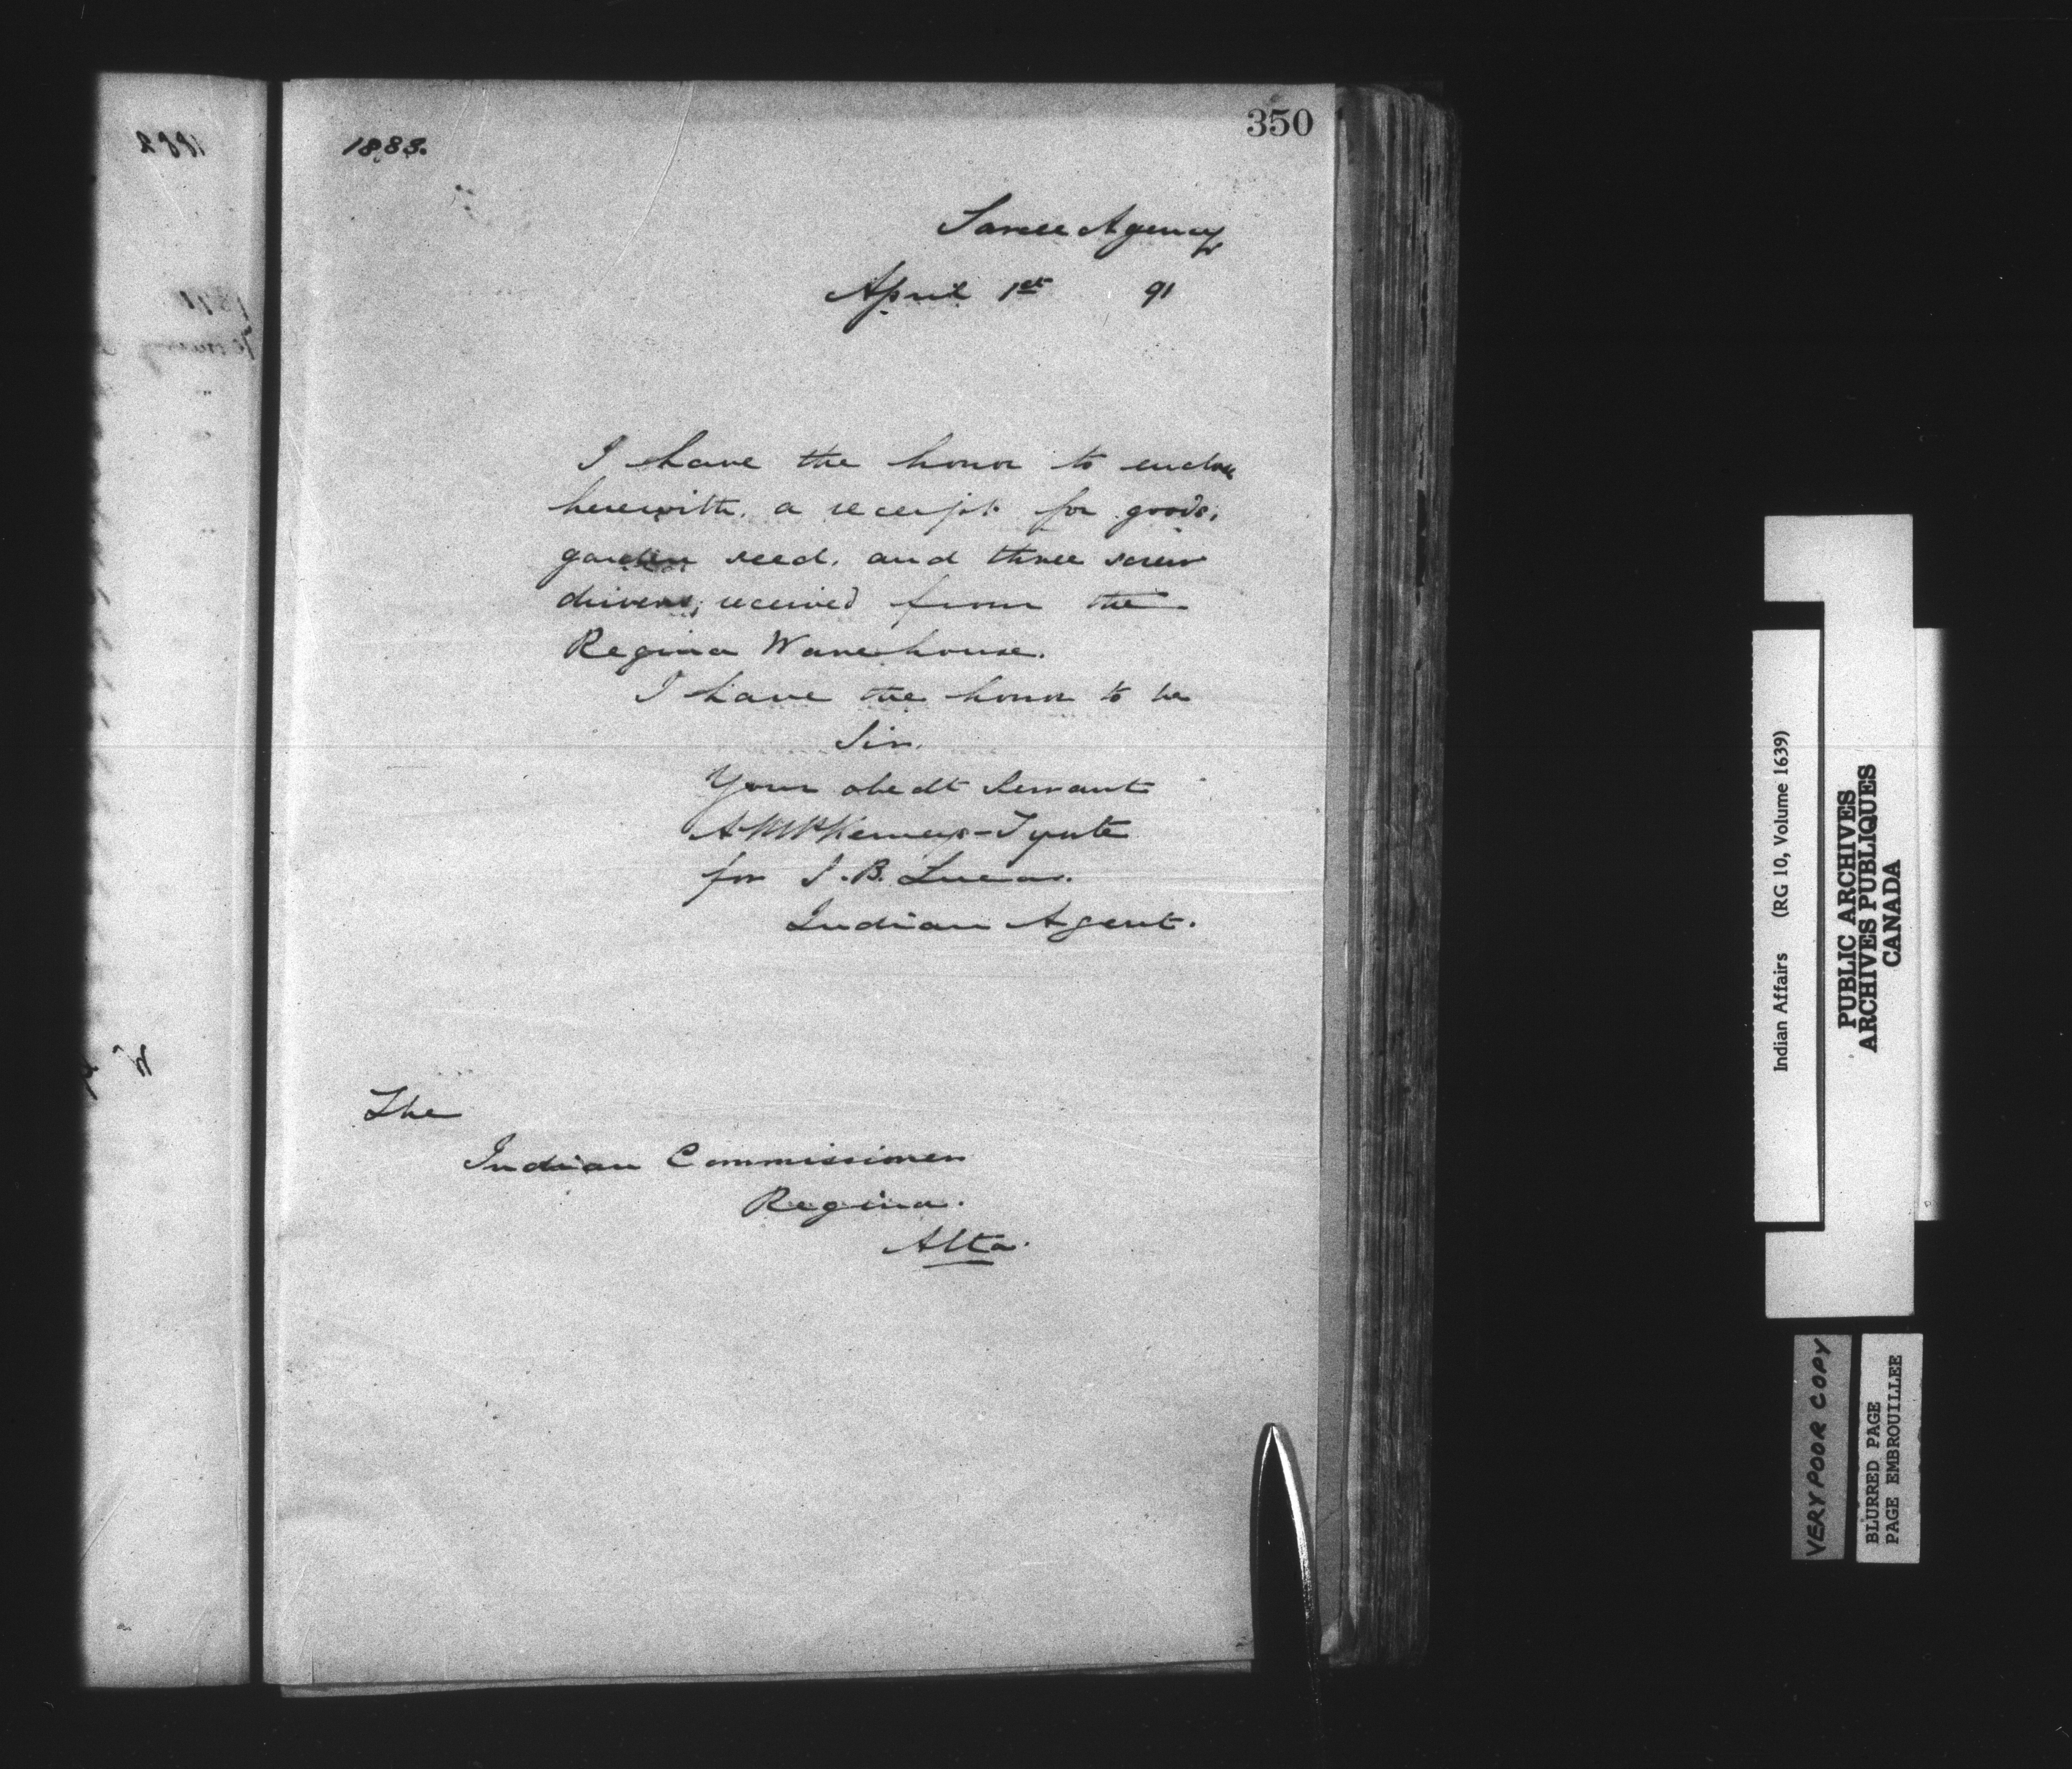 350
1883.
Sarcee Agency
April 1st 91
I have the honor to enclose
herewith. a receipt for goods,
garden seed, and three screw
drivers, received from the
Regina Warehouse.
I have the honor to be
Sir.
Your obedt Servant
for J. B. Lucas.
Indian Agent.
The
Indian Commissioner
Regina.
Alta.
1882
Indian Affairs (RG 10, Volume 1639)
PUBLIC ARCHIVES
ARCHIVES PUBLIQUES
CANADA
VERY POOR COPY
BLURRED PAGE
PAGE EMBROUILLEE